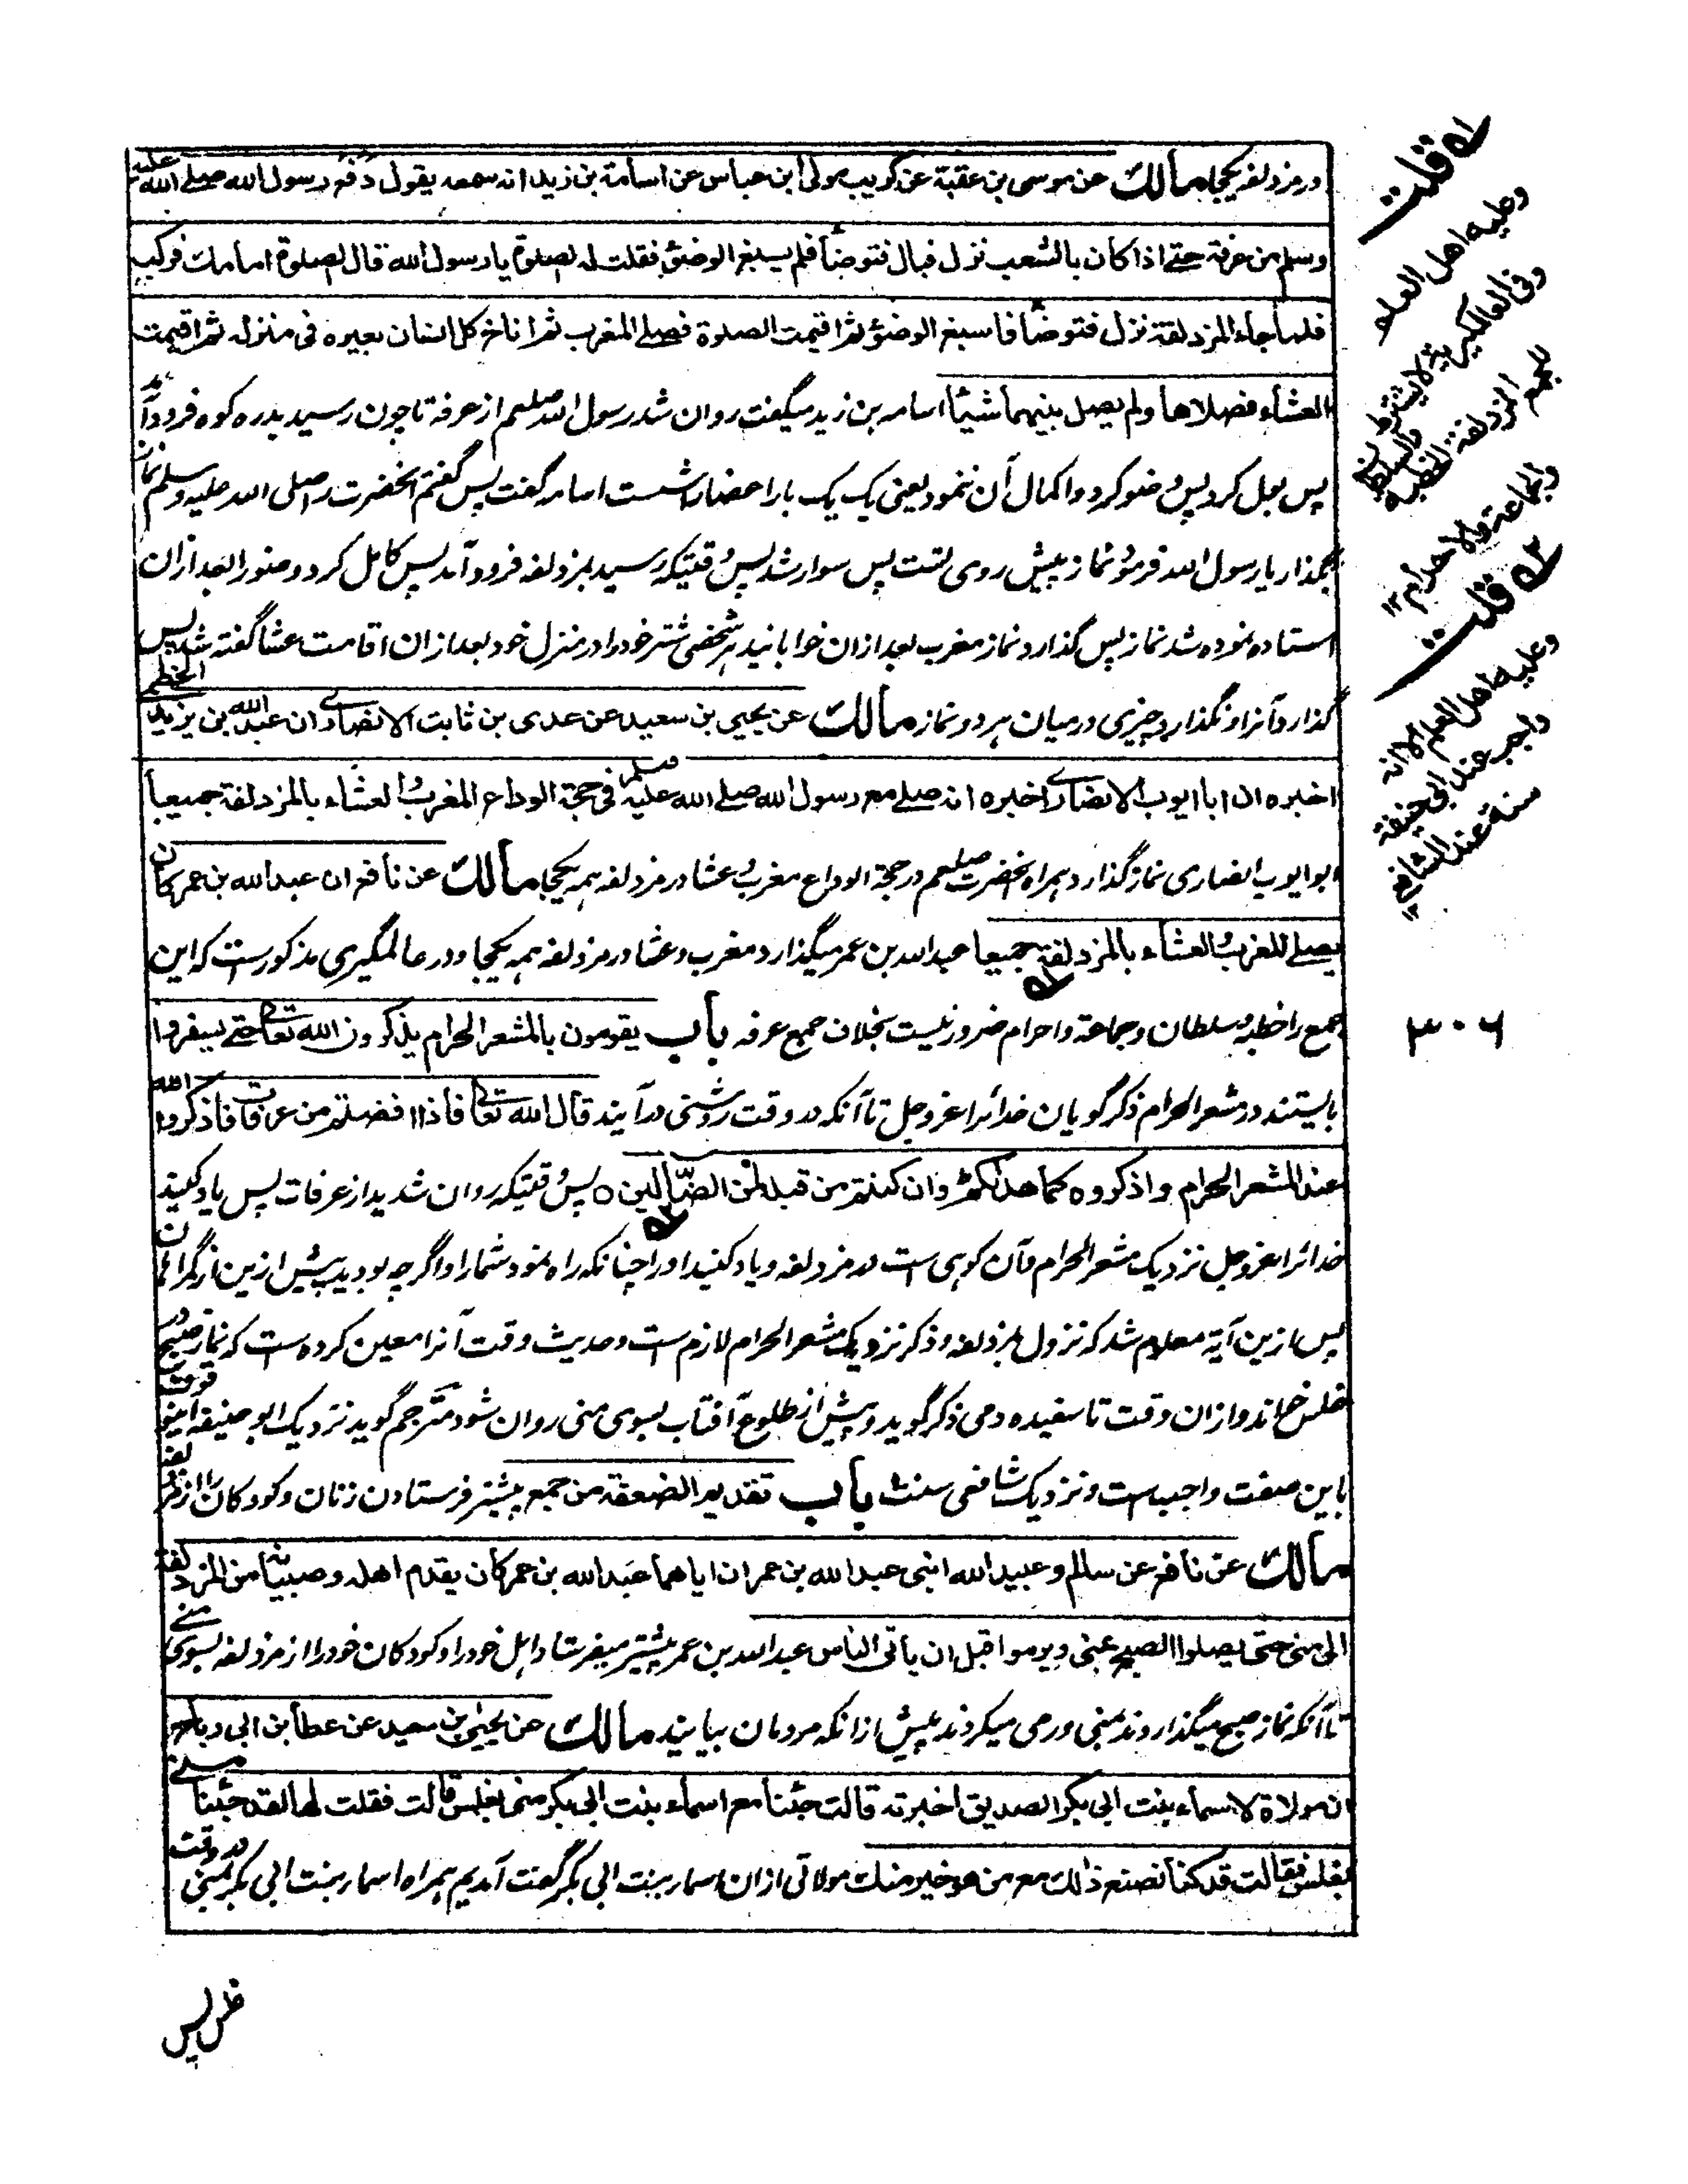 در مزدلفہ یکجا مالك عن موسی بن عقبة عن کریب مولی ابن عباس عن اسامة بن زید انه سمعه یقول دفع رسول الله صلے الله علیه
وسلم من عرفة حتے اذا کان بالشعب نزل فبال فتوضأ فلم یسبغ الوضوء فقلت له الصلوة یا رسول الله قال الصلوة امامك فرکب
فلما جاء المزدلفة نزل فتوضأ فاسبغ الوضوء ثم اقیمت الصلوة فصلے المغرب ثم اناخ کل انسان بعیره فی منزله ثم اقیمت
العشاء فصلاها ولم یصل بینهما شیئا اسامہ بن زید میگفت روان شد رسول اللہ صلعم از عرفہ تا چون رسید بدرہ کوہ فرود آمد
پس بول کرد پس وضو کرد و اکمال آن ننمود یعنی یک یک بار اعضا را شست اسامہ گفت پس گفتم آنحضرت را صلی اللہ علیہ وسلم نماز
بگذار یا رسول اللہ فرمود نماز پیش روی تست پس سوار شد پس وقتیکہ رسید بمزدلفہ فرود آمد پس کامل کرد وضو را بعد ازان
استادہ نمودہ شد نماز پس گذارد نماز مغرب بعد ازان خوابانید ہر شخصی شتر خود را در منزل خود بعد ازان اقامت عشا گفتہ شد پس
گذارد آنرا و نگذارد چیزی درمیان ہر دو نماز مالك عن یحیی بن سعید عن عدی بن ثابت الانصاری ان عبد الله بن یزید الخطمی
اخبره ان ابا ایوب الانصاری اخبره انه صلے مع رسول الله صلے الله علیه وسلم فی حجة الوداع المغرب والعشاء بالمزدلفة جمیعا
ابو ایوب انصاری نماز گذارد ہمراہ آنحضرت صلعم در حجۃ الوداع مغرب و عشا در مزدلفہ ہمہ یکجا مالك عن نافع ان عبد الله بن عمر کان
یصلے المغرب والعشاء بالمزدلفة جمیعا عبد اللہ بن عمر میگذارد مغرب و عشا در مزدلفہ ہمہ یکجا و در عالمگیری مذکورست کہ این
جمع را خطبہ و سلطان و جماعۃ و احرام ضرور نیست بخلاف جمع عرفہ باب یقومون بالمشعر الحرام یذکرون الله تعالی حتے یسفروا
بایستند در مشعر الحرام ذکر گویان خدائرا عزوجل تا آنکہ در وقت روشنی در آیند قال الله تعالی فاذا افضتم من عرفات فاذکروا الله
عند المشعر الحرام واذکروه کما هداکم وان کنتم من قبله لمن الضّالّین ٥ پس وقتیکہ روان شدید از عرفات پس یاد کنید
خدائرا عزوجل نزدیک مشعر الحرام و آن کوہی ست در مزدلفہ و یاد کنید او را چنانکہ راہ نمود شما را و اگرچہ بودید پیش ازین از گمراہان
پس ازین آیۃ معلوم شد کہ نزول بمزدلفہ و ذکر نزدیک مشعر الحرام لازم ست و حدیث وقت آنرا معین کردہ ست کہ نماز صبح در
غلس خواند و ازان وقت تا سفیدہ دمی ذکر گوید و پیش از طلوع آفتاب بسوی منی روان شود مترجم گوید نزدیک ابو حنیفہ اینوقوف
باین صفت واجب ست و نزدیک شافعی سنت باب تقدیم الضعفة من جمع پیشتر فرستادن زنان و کودکان را از مزدلفہ
مالك عن نافع عن سالم وعبید الله ابنی عبد الله بن عمر ان اباهما عبد الله بن عمر کان یقدم اهله وصبیانه من المزدلفة
الی منی حتی یصلوا الصبح بمنی ویرموا قبل ان یأتی الناس عبد اللہ بن عمر پیشتر میفرستاد اہل خود را و کودکان خود را از مزدلفہ بسوی منے
تا آنکہ نماز صبح میگذاردند بمنی و رمی میکردند پیش ازانکہ مردمان بیایند مالك عن یحیی بن سعید عن عطاء بن ابی رباح
ان مولاة لاسماء بنت ابی بکر الصدیق اخبرته قالت جئنا مع اسماء بنت ابی بکر منی بغلس قالت فقلت لها لقد جئنا منے
بغلس فقالت قد کنا نصنع ذلك مع من هو خیر منك مولاتی ازان اسماء بنت ابی بکر گفت آمدیم ہمراہ اسماء بنت ابی بکر بمنی در وقت
غلس پس
له قلت
وعلیه اهل العلم
وفی العالمگیریة لا یشترط
للجمع المزدلفة الخطبة والسلطان
والجماعة والاحرام ١٢
له قلت
وعلیه اهل العلم الا انه
واجب عند ابی حنیفة
سنة عند الشافعی ١٢
٣٠٦